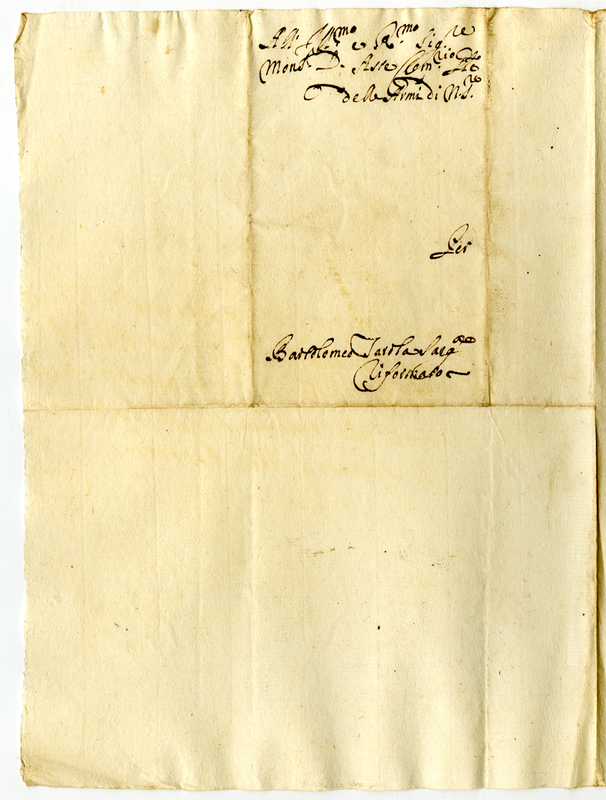 All' Ill.mo e R.mo Sig.re
Mons.r D' Aste Com.rio
delle Armi di N.S.re
Per
Bartolomeo Sarg.te
Riformato